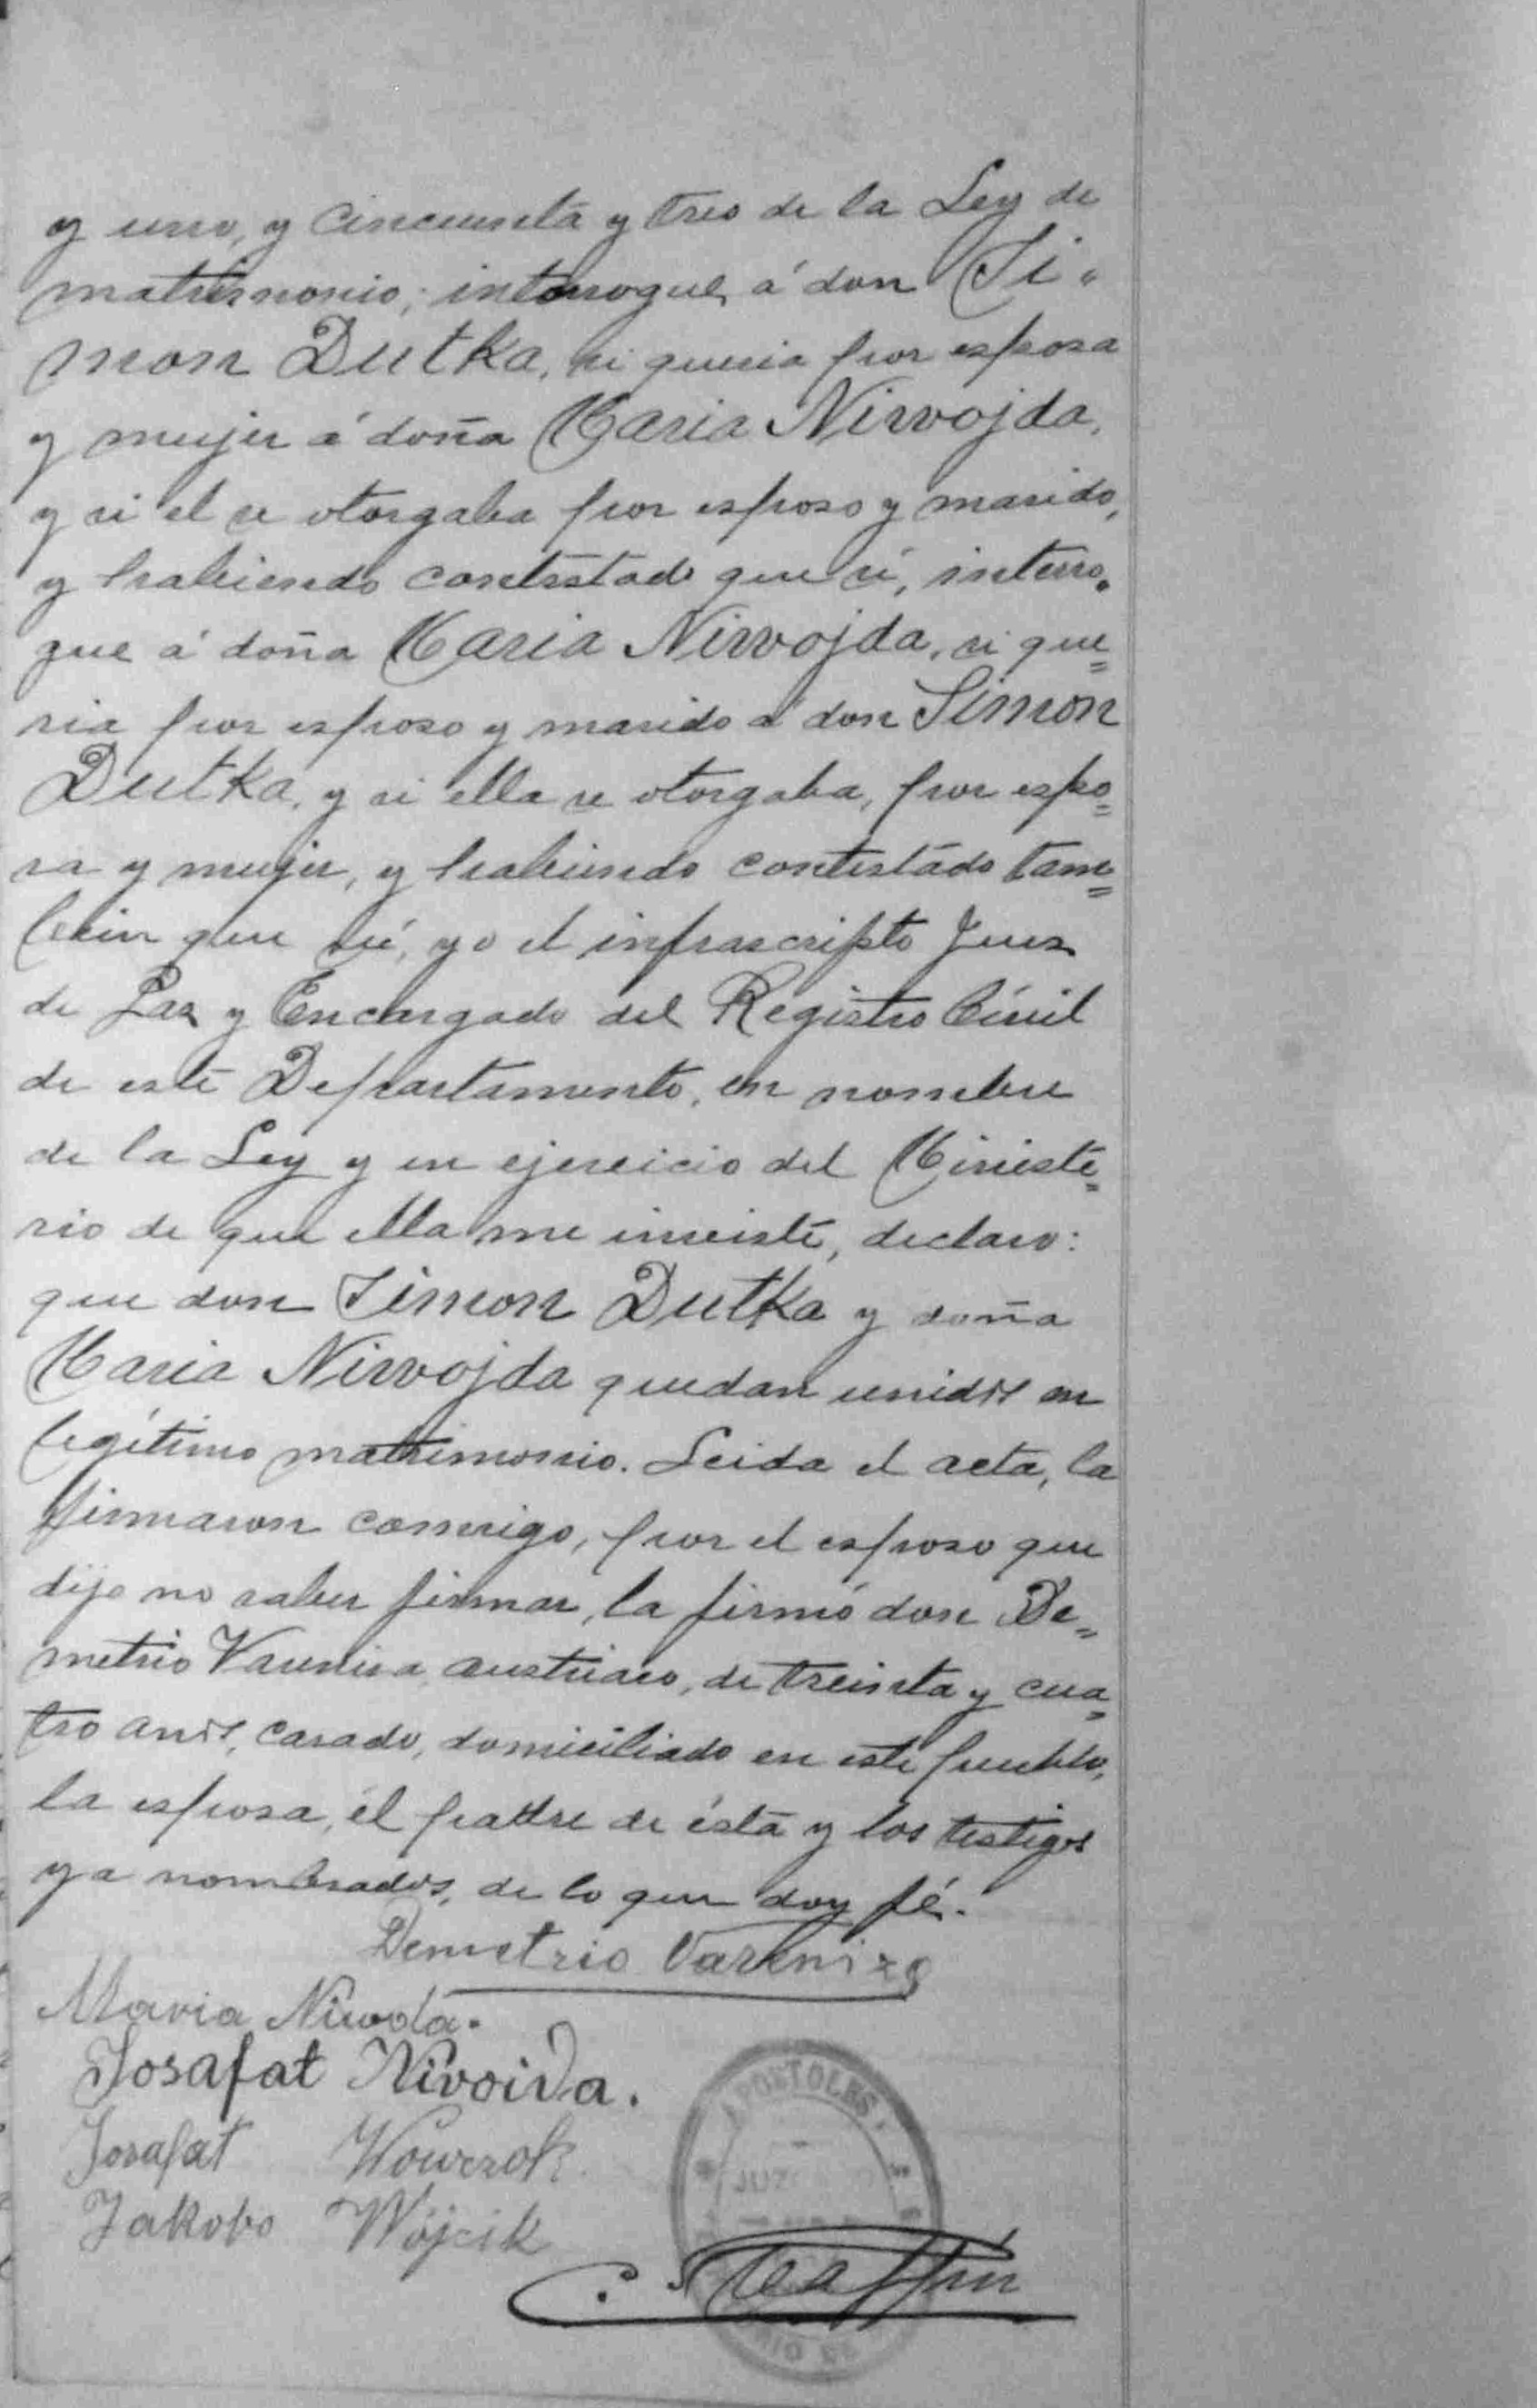 y uno, y cincuenta y tres de la Ley de
matrimonio; interrogué, á don Si-
mon Dutka, si queria por esposa
y mujer á doña Maria Niwojda,
y si el se otorgaba por esposo y marido,
y habiendo contestado que sí, interro-
gue á doña Maria Niwojda, si que=
ria por esposo y marido á don Simon
Dutka, y si ella se otorgaba, por espo=
sa y mujer, y habiendo contestado tam=
bien que sí, yo el infrascripto Juez
de Paz y Encargado del Registro Civil
de este Departamento, en nombre
de la Ley y en ejercicio del Ministe=
rio de que ella me inviste, declaro:
que don Simon Dutka y doña
Maria Niwojda quedan unidos en
legítimo matrimonio. Leida el acta, la
firmaron conmigo, por el esposo que
dijo no saber firmar, la firmó don De=
metrio austriaco, de treinta y cua=
tro años, casado, domiciliado en este pueblo,
la esposa, el padre de ésta y los testigos
ya nombrados, de lo que doy fé.
Demetrio
Maria Niwoda.
Josafat Nivoida.
Josafat Wowczok
Jakobo Wójcik
APOSTOLES